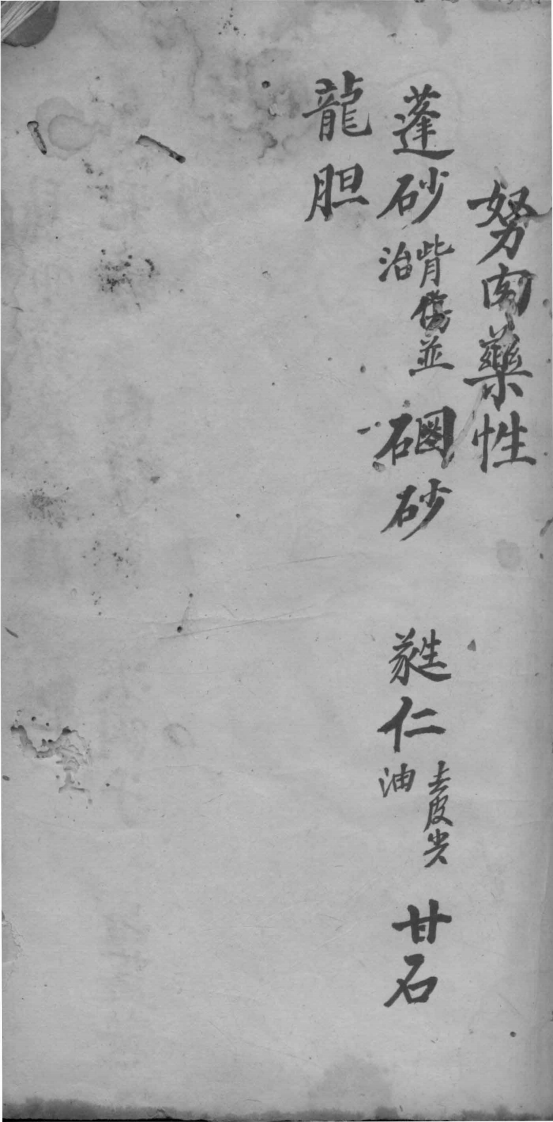 努肉藥性
蓬砂 治眥傷並 硇砂 蕤仁 去皮尖油 甘石
龍胆